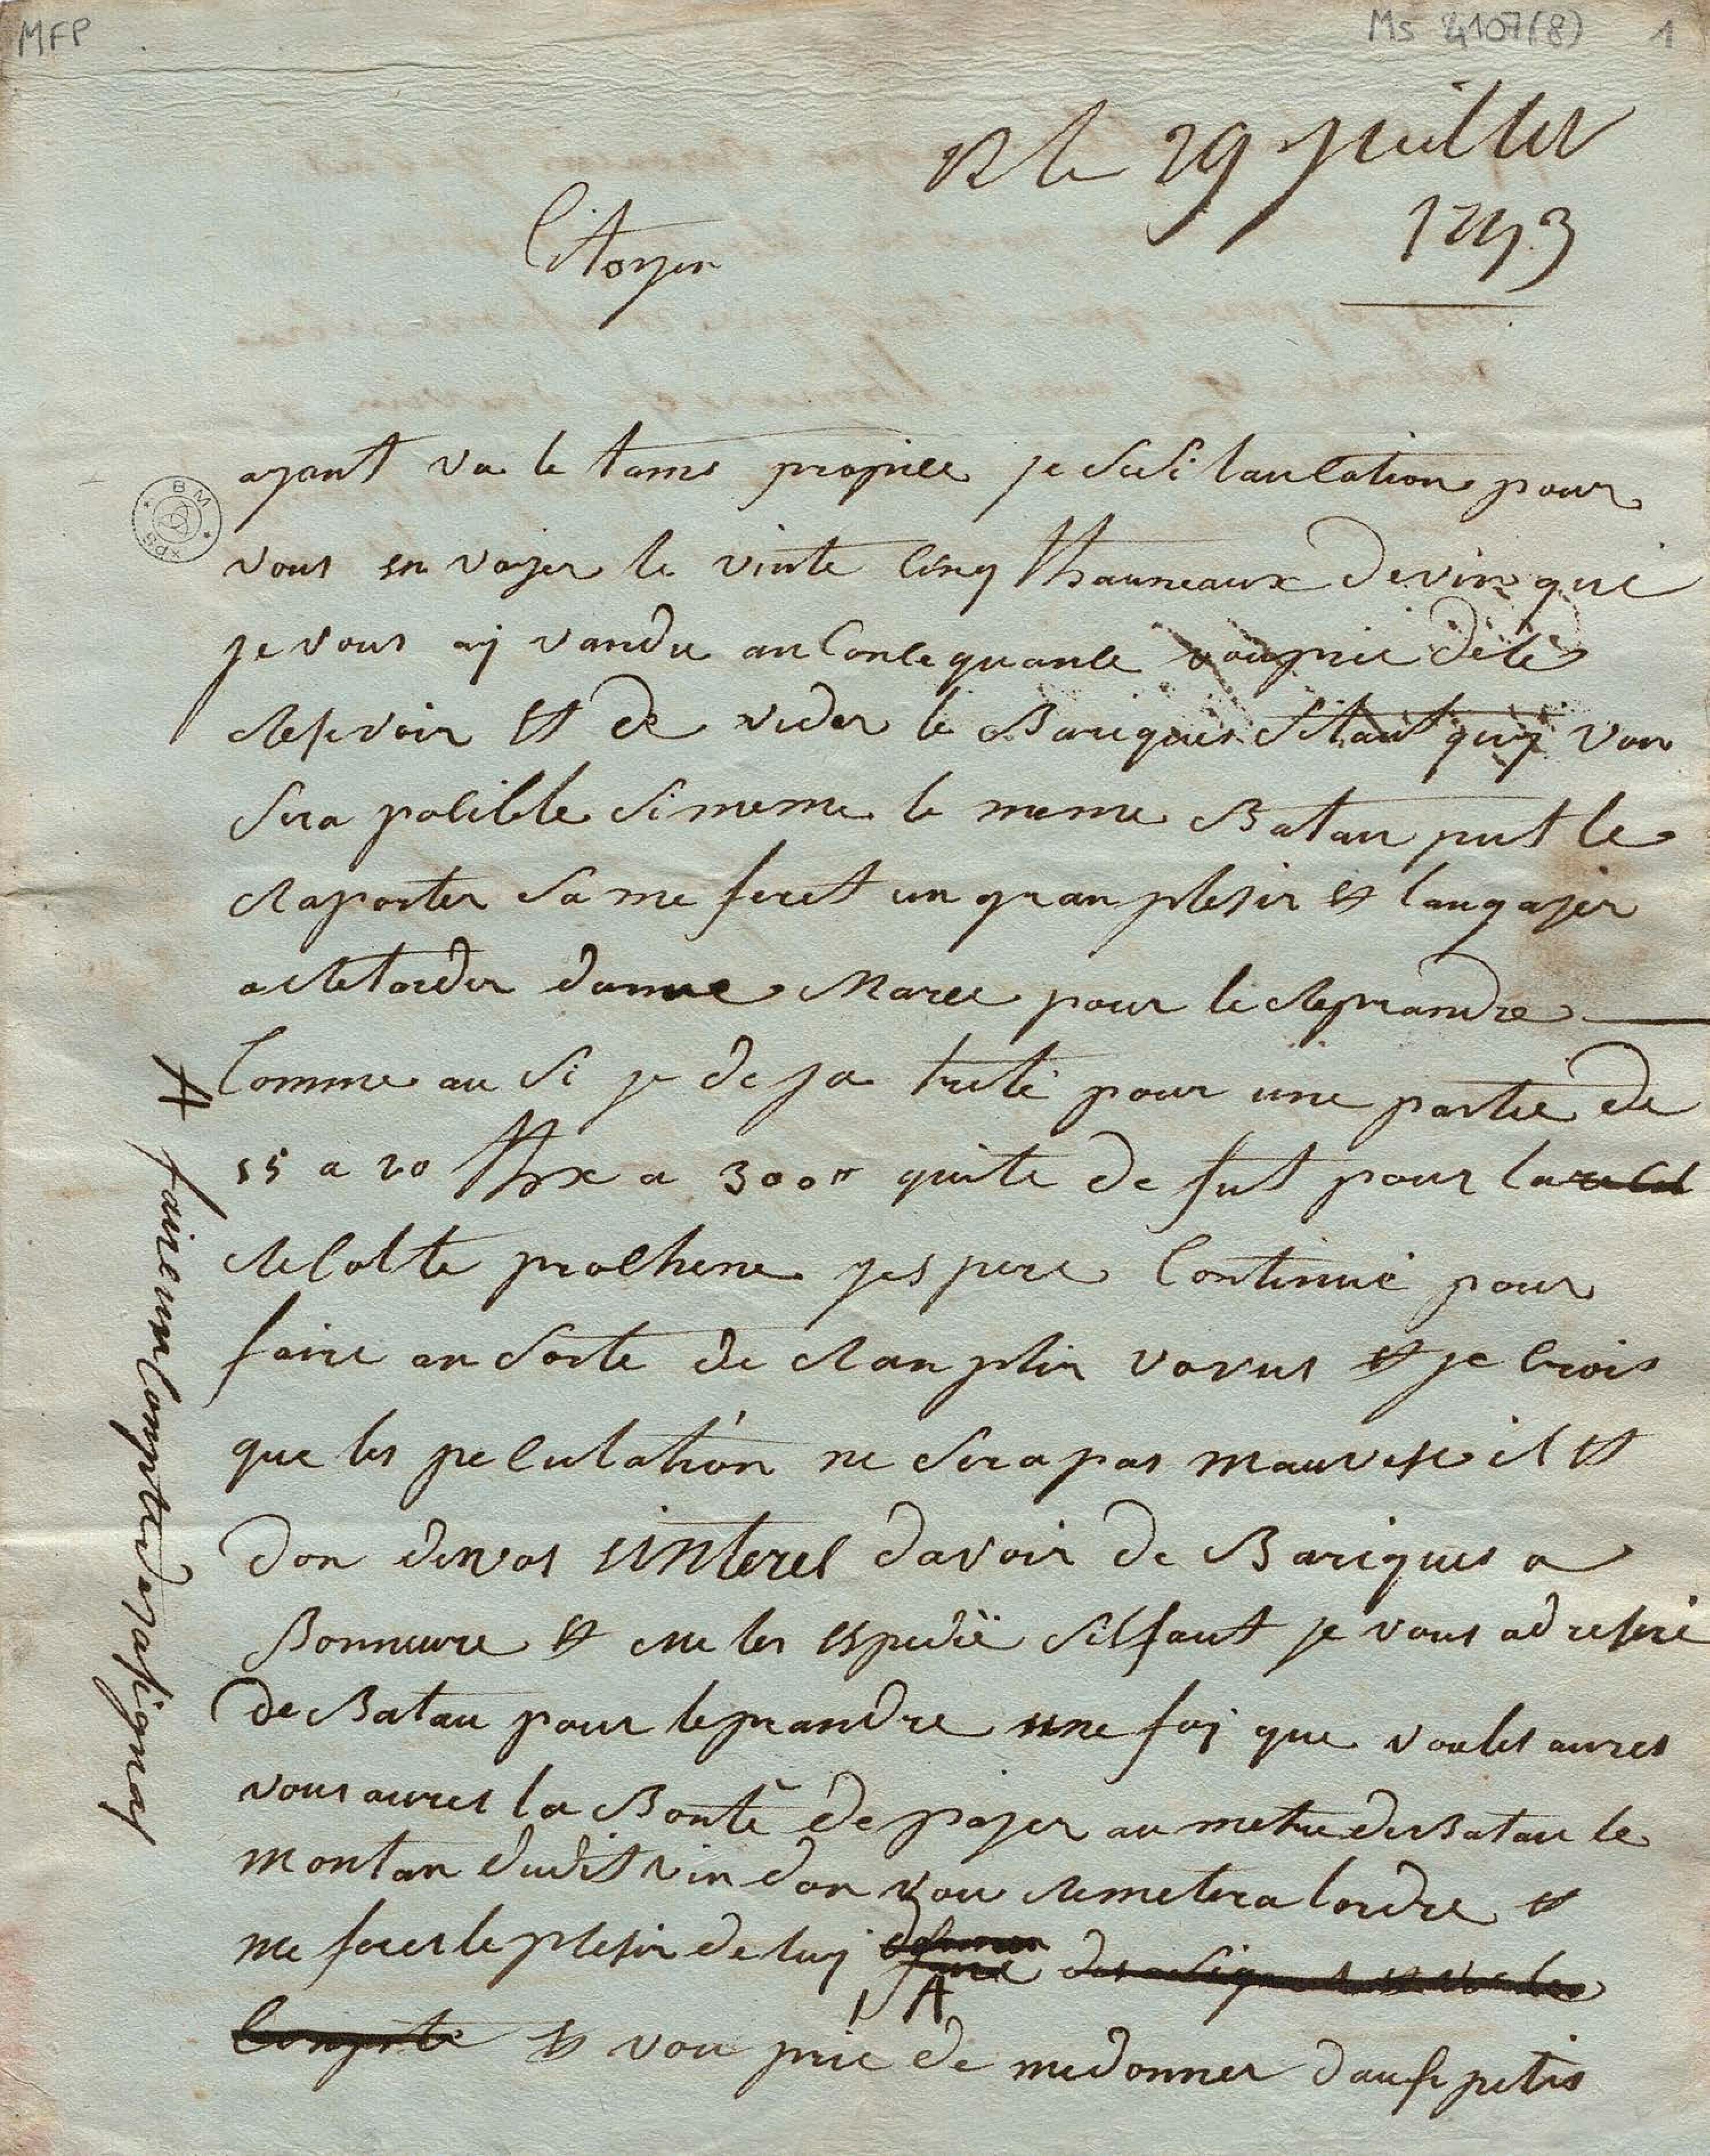 MFP
Ms 4107(8) 1
R le 29 juillet
1793
Citoyen
ayant vu le tams propice je sesi laucation pour
vous en voyer le vinte cinq thauneaux de vin que
je vous ay vandu an consequance vou prie dele
resevoir et de vider le Bariques sitaut quy vou
sera posible si meme le meme Batau put le
raporter sa me feret un gran plesir et langajer
a retarder dunne Maree pour le reprandre
Comme au si je deja trété pour une partie de
15 a 20 thx a 300# quite de fut pour la
recolte prochene jespere continué pour
faire an sorte de ranplir vovus et je crois
que les peculation ne sera pas mauvese il et
don de vos sinteres davoir de Bariques a
Bonneure et me les espedié silfaut je vous adreseré
de Batau pour leprandre une foy que voules aures
vous aures la Bonté de payer au metre de Batau le
montan dudit vin don vou remetera lordre et
me feres le plesir de luy
A
Compte et vou prie de me donner dause petis
A faire un Compte des asignas
BM